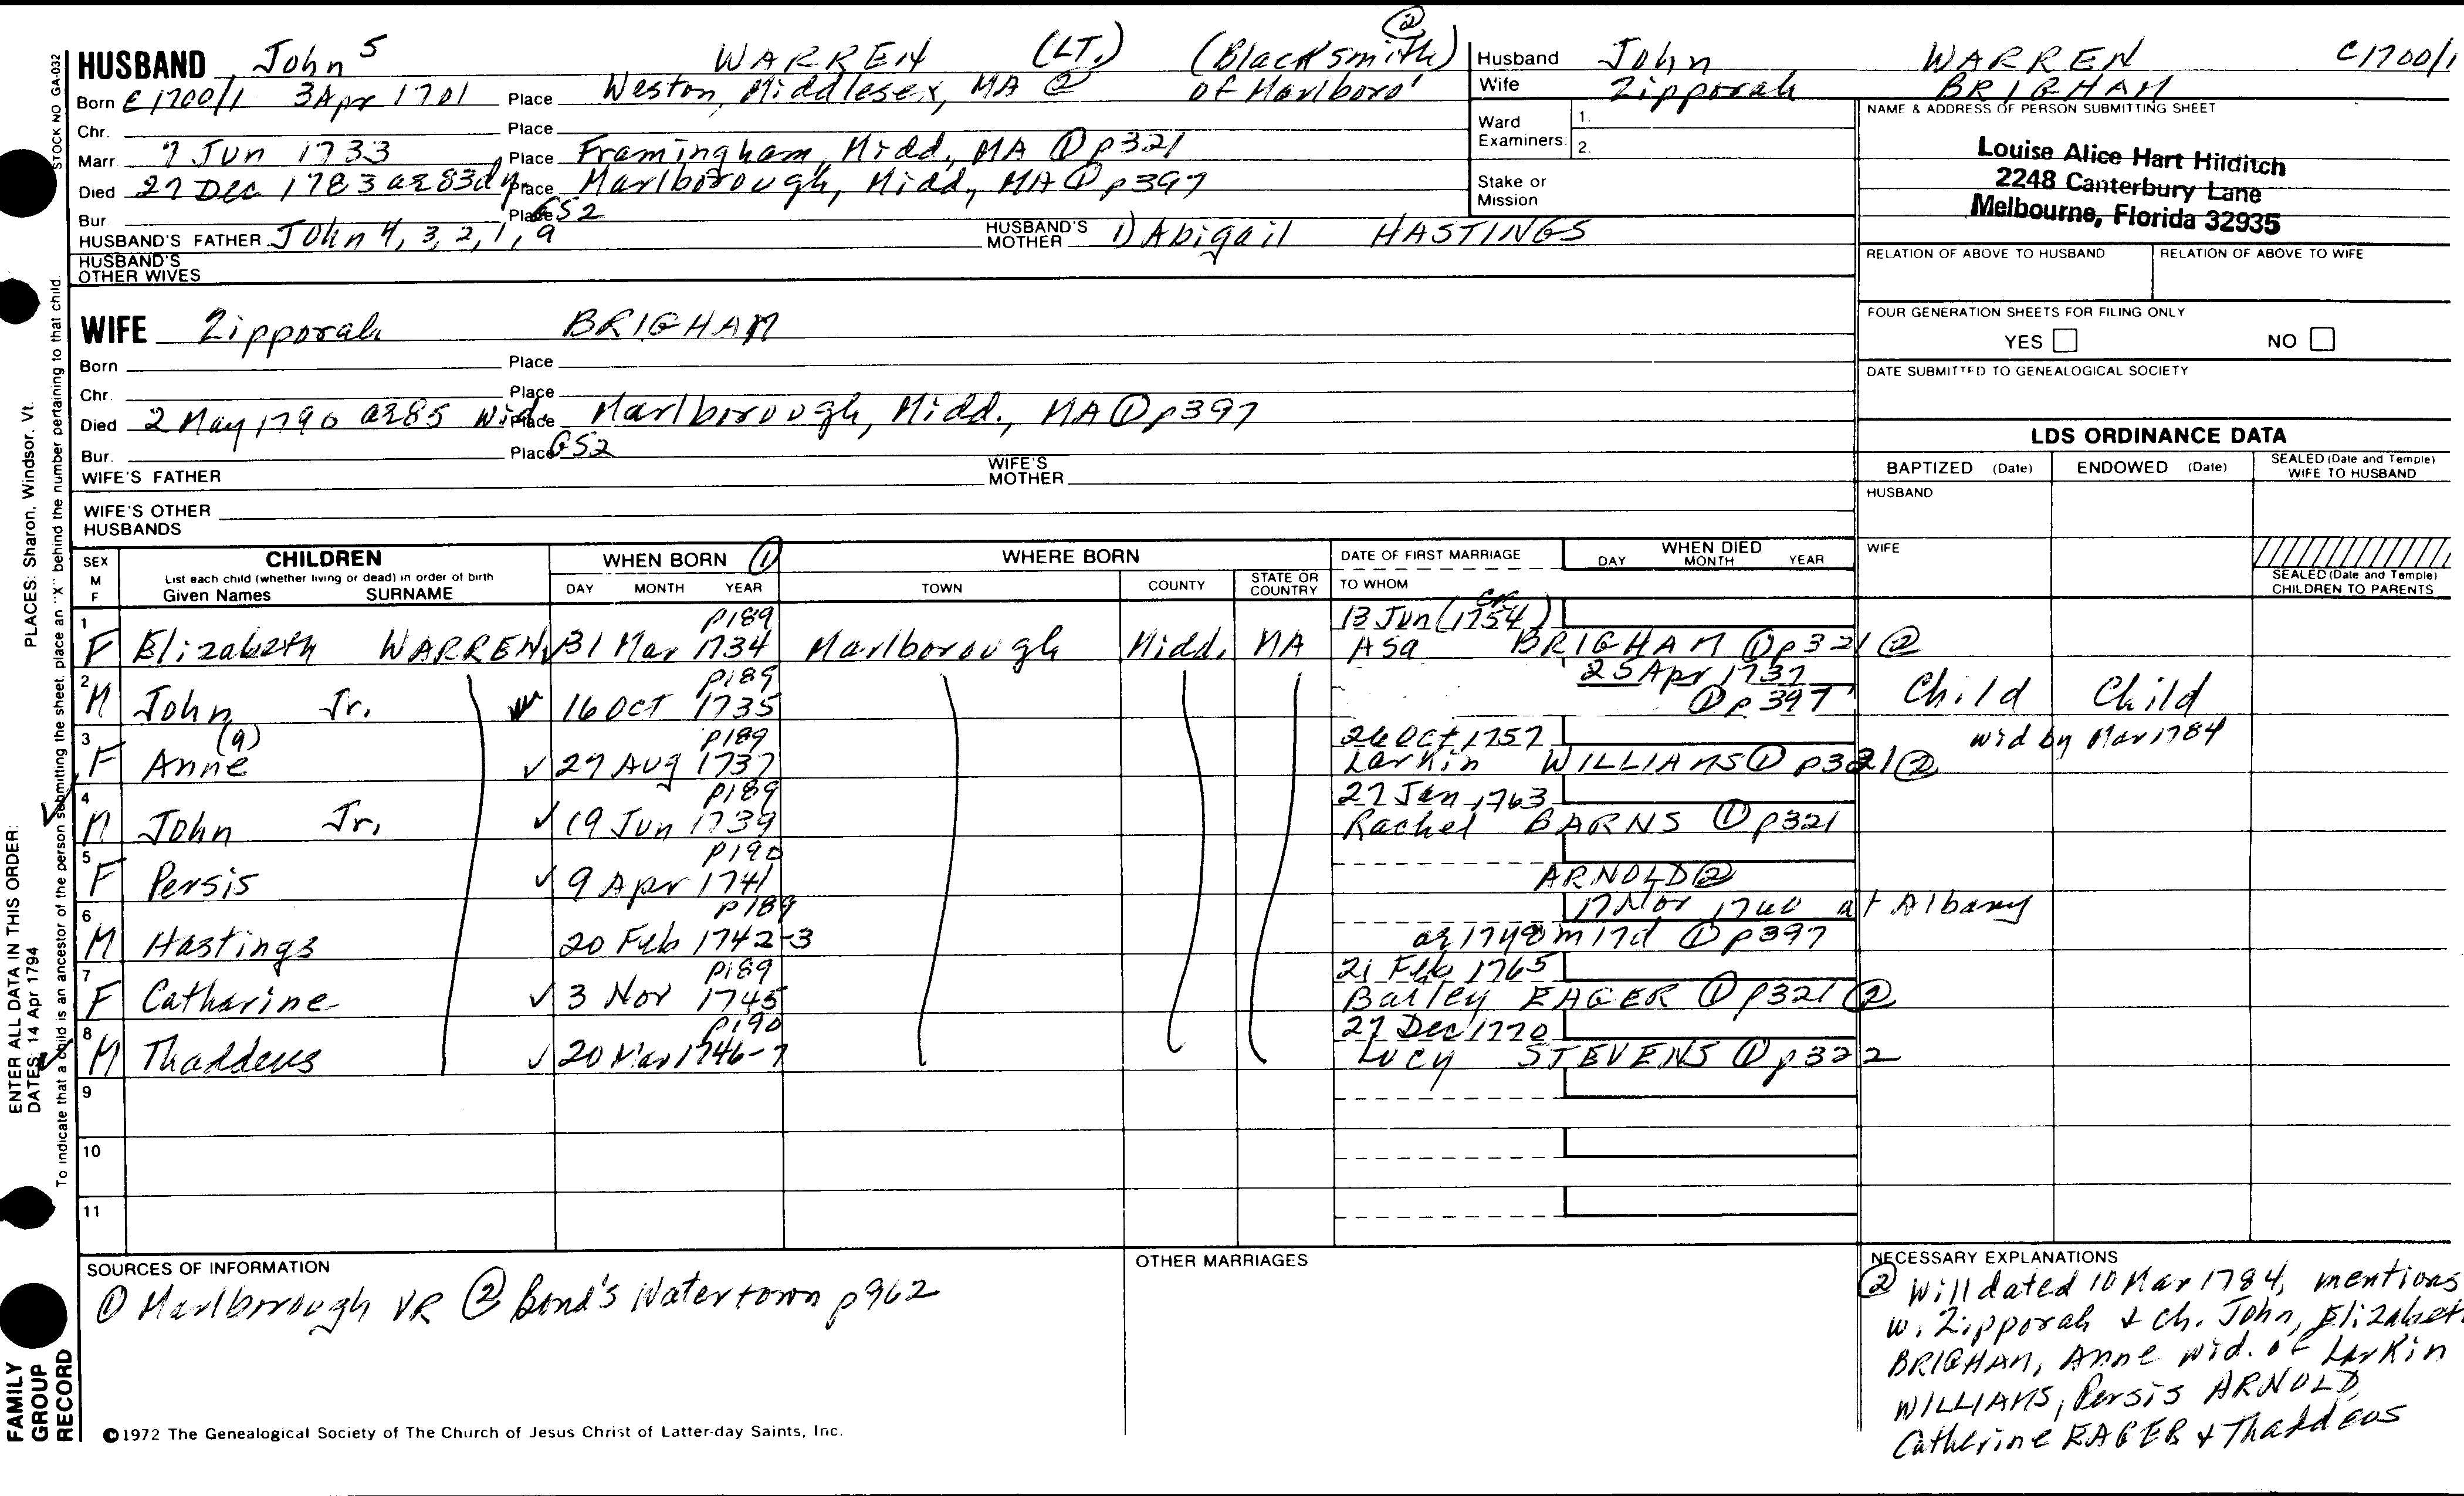 HUSBAND John 5 WARREN (LT.) (Blacksmith) ②
Born c1700/1 3 Apr 1701 Place Weston, Middlesex, MA ② of Marlboro'
Chr. Place
Marr 7 Jun 1733 Place Framingham, Midd., MA ① p321
Died 27 Dec 1783 ae 83d yr Place Marlborough, Midd., MA ① p397
Bur. Place GS2
HUSBAND'S FATHER John 4, 3, 2, 1, a HUSBAND'S MOTHER 1) Abigail HASTINGS
HUSBAND'S OTHER WIVES
Husband John WARREN c1700/1
Wife Zipporah BRIGHAM
Ward 1.
Examiners: 2.
Stake or
Mission
NAME & ADDRESS OF PERSON SUBMITTING SHEET
Louise Alice Hart Hilditch
2248 Canterbury Lane
Melbourne, Florida 32935
RELATION OF ABOVE TO HUSBAND RELATION OF ABOVE TO WIFE
FOUR GENERATION SHEETS FOR FILING ONLY
YES NO
DATE SUBMITTED TO GENEALOGICAL SOCIETY
WIFE Zipporah BRIGHAM
Born Place
Chr. Place
Died 2 May 1790 ae 85 wid. Place Marlborough, Midd., MA ① p397
Bur. Place GS2
WIFE'S FATHER WIFE'S MOTHER
WIFE'S OTHER HUSBANDS
LDS ORDINANCE DATA
BAPTIZED (Date) ENDOWED (Date) SEALED (Date and Temple) WIFE TO HUSBAND
HUSBAND
WIFE
SEALED (Date and Temple) CHILDREN TO PARENTS
SEX M F CHILDREN WHEN BORN ① WHERE BORN DATE OF FIRST MARRIAGE WHEN DIED
List each child (whether living or dead) in order of birth DAY MONTH YEAR TOWN COUNTY STATE OR COUNTRY TO WHOM DAY MONTH YEAR
Given Names SURNAME
p189 13 Jun (1754)
1 F Elizabeth WARREN 31 Mar 1734 Marlborough Midd. MA Asa BRIGHAM ① p321 ②
p189 25 Apr 1737
2 M John Jr. 16 Oct 1735 ① p397 Child Child
p189 26 Oct 1757 wid by Mar 1784
3 F Anne (a) 27 Aug 1737 Larkin WILLIAMS ① p321 ②
p189 27 Jan 1763
4 M John Jr. 19 Jun 1739 Rachel BARNS ① p321
p190
5 F Persis 9 Apr 1741 ARNOLD ②
p189 17 Nor 1760 at Albany
6 M Hastings 20 Feb 1742-3 ae 17y 8m 17d ① p397
p189 21 Feb 1765
7 F Catharine 3 Nov 1745 Bailey EAGER ① p321 ②
p190 27 Dec 1770
8 M Thaddeus 20 Mar 1746-7 Lucy STEVENS ① p322
9
10
11
SOURCES OF INFORMATION
① Marlborough VR ② Bond's Watertown p962
OTHER MARRIAGES
NECESSARY EXPLANATIONS
② Will dated 10 Mar 1784, mentions
w. Zipporah + ch. John, Elizabeth
BRIGHAM, Anne wid. of Larkin
WILLIAMS, Persis ARNOLD,
Catherine EAGER + Thaddeus
©1972 The Genealogical Society of The Church of Jesus Christ of Latter-day Saints, Inc.
STOCK NO GA-032
To indicate that a child is an ancestor of the person submitting the sheet, place an "X" behind the number pertaining to that child.
PLACES: Sharon, Windsor, Vt.
ENTER ALL DATA IN THIS ORDER:
DATES: 14 Apr 1794
FAMILY
GROUP
RECORD